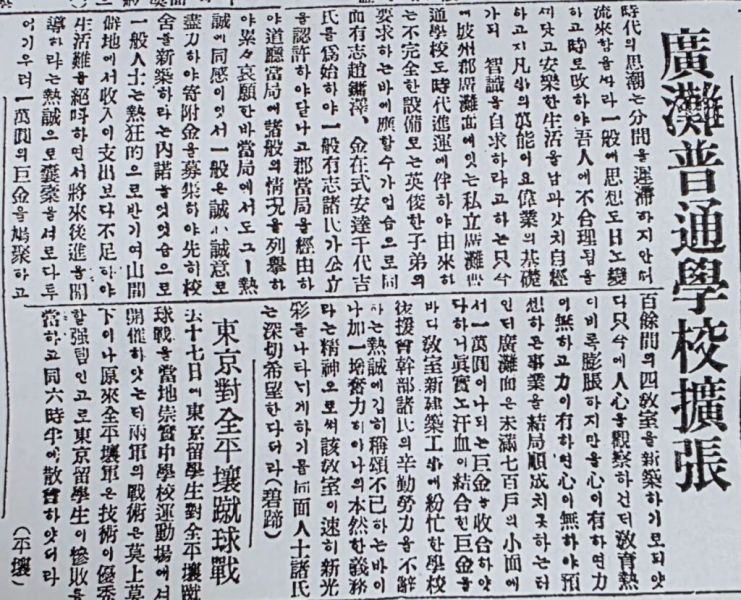 廣灘普通學校擴張
時代의 思潮는 分間을 遲滯하지안터
流來함을싸라 一般에 思想도 日노 變
하고 時로 改하야 吾人에 不合理됨을
깨닷고 安樂한 生活을 남과갓치 自經
하고지 凡바의 萬能이요 偉業의 基礎
가되 智識을 自求하라고하는 只今
에 坡州郡廣灘面에잇는 私立廣灘普
通學校도 時代進運에 伴하야 由來하
는 不完全한 設備로는 英俊한 子弟의
要求하는바에 應할수가업슴으로 同
面有志趙鏞澤、金在式安達千代吉
氏를 爲始하야 一般有志諸氏가 公立
을 認許하야달나고 郡當局을 經由하
야 道廳當局에 諸般의 情況을 列擧하
야 累次 哀願한바 當局에서도 그ㅣ熱
誠에 同感이잇서 一般은 誠心誠意로
盡力하야 寄附金을 募集하야 先히 校
舍를 新築하라는 內諾을엇엇슴으로
一般人士는 熱狂的으로 반기여 山間
僻地에서 收入이 支出보다 不足하야
生活難을 絕呼하면서 將來後進을 開
導하라는 熱誠으로 囊橐을 서로다투
어기우려 一萬圓의 巨金을 鳩聚하고
百餘間의 四敎室을 新築하기로되얏
다 只今에 人心을 觀察하건대 敎育熱
이비록 膨脹하지만은 心이 有하면 力
이 無하고 力이 有하면 心이 無하야 預
想하는 事業을 結局順成치못하는터
인데 廣灘面은 未滿七百戶의 小面에
서 一萬圓이나되는 巨金을 收合하얏
다하니 眞實노 汗血이 結合된 巨金을
바더 敎室新建築工事에 紛忙한 學校
後援會幹部諸氏의 辛勤勞力을 不辭
하는 熱誠에 깁히 稱頌不已하는바이
나 加一增奮力하야 나의 本然한 義務
라는 精神으로써 該敎室이 速히 新光
彩를 나타내게하기를 同面人士諸氏
는 深切希望한다더라(碧蹄)
東京對全平壤蹴球戰
去十七日에 東京留學生對全平壤蹴
球戰을 當地崇實中學校運動場에서
開催하얏는데 兩軍의 戰術은 莫上莫
下이나 原來全平壤軍은 技術이 優秀
할强팀인고로 東京留學生이 慘敗를
當하고 同六時半에 散會하얏더라
(平壤)